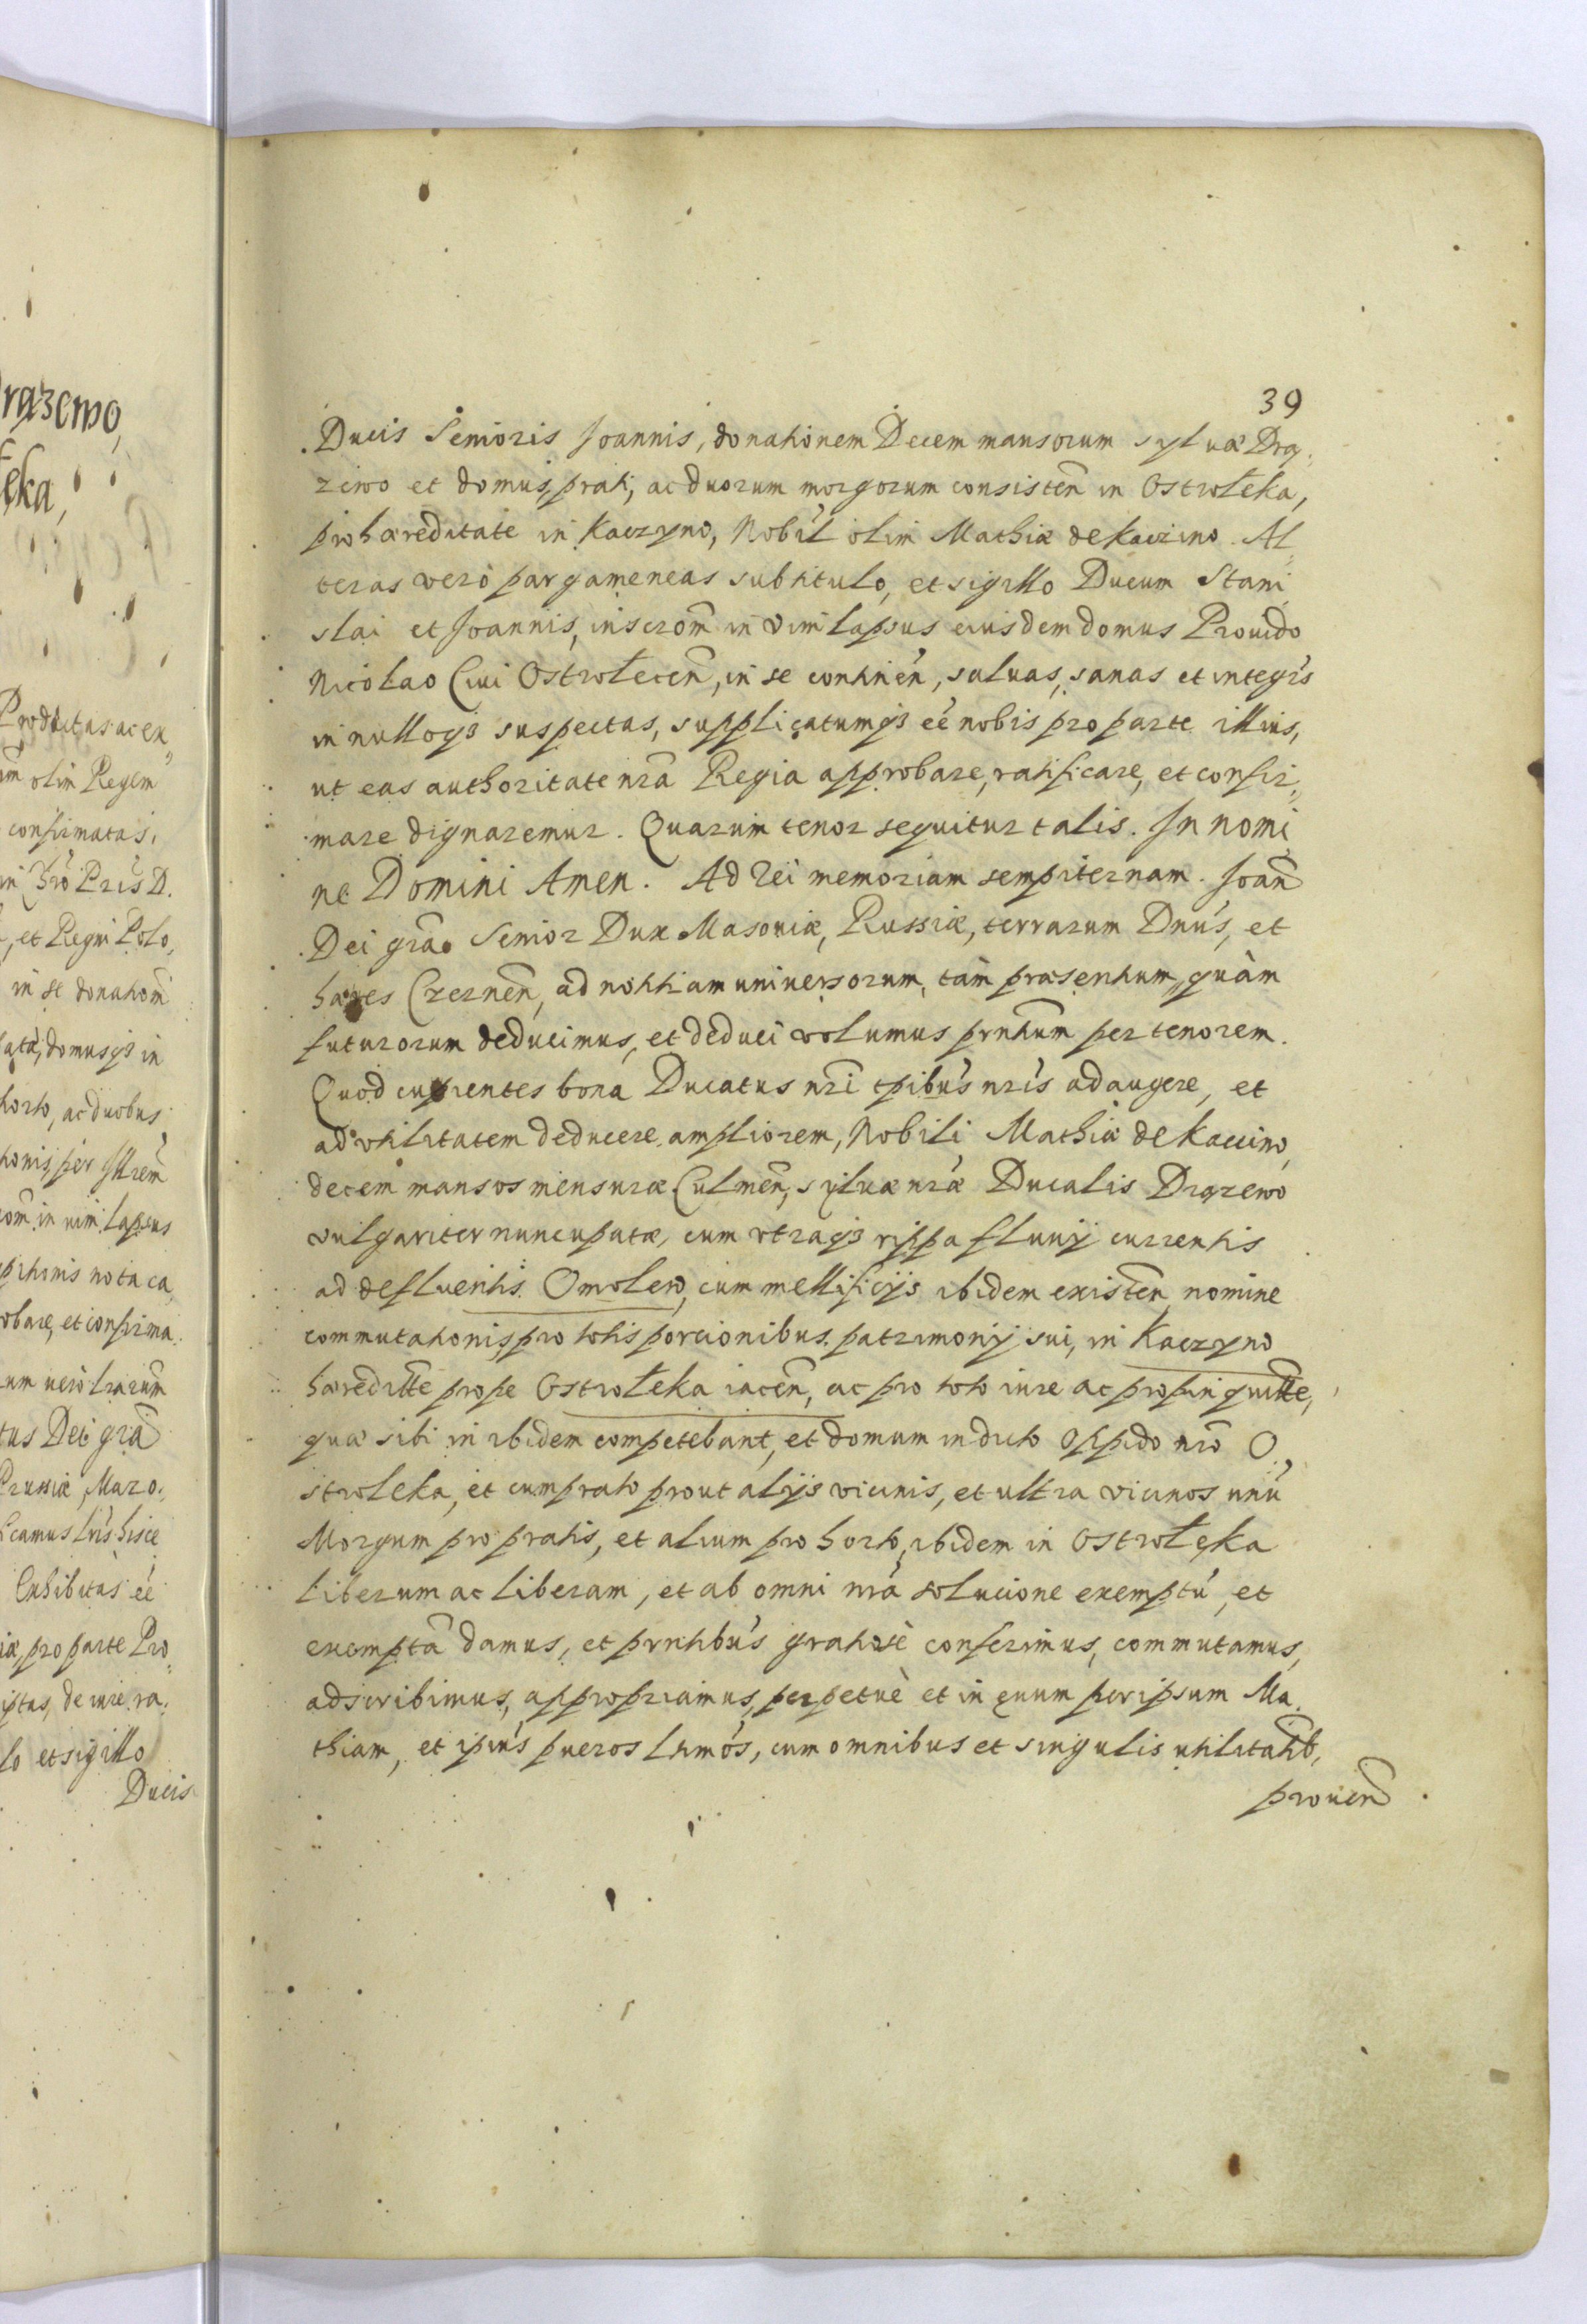 rązewo,
łęka,
Productas ac ex
im olim Regem
confirmatas,
et Regni Polo,
in se donahom̃
domusq3 in
horto, ac duobus
in vim lapsus
obare, et confirma
um vero lrarum̃
tus Dei gr̃a
Prussiæ, Mazo.,
Exhibitas eẽ
pro parte Pro
de iure ra.
lo et sigillo
Ducis
39
Ducis Senioris Joannis, donationem Decem mansorum syluæ Drą,
zewo et domus, prati, ac duorum morgorum consisteñ in Ostrołeka,
pro hæreditate in Kaczyno, Nobil̃ olim Mathiæ de Kaczino. Al
teras verò pargameneas sub titulo, et sigillo Ducum Stani
slai et Joannis, inscrom̃ in vim lapsus eiusdem domus Prouido
Nicolao Ciui Ostrołeceñ, in se contineñ, saluas, sanas et integrs̃
in nulloq3 suspectas, supplicatumq3 eẽ nobis pro parte illius,
ut eas authoritate nr̃a Regia approbare, ratificare, et confir,
mare dignaremur. Quarum tenor sequitur talis. In nomi
ne Domini Amen. Ad Rei memoriam sempiternam. Joañ
Dei gr̃a Senior Dux Masouiæ, Russiæ, terrarum Dnũs, et
hæres Czerneñ, ad notitiam uniuersorum, tàm præsentium, quàm
futurorum deducimus, et deduci volumus prñtium per tenorem.
Quod cupientes bona Ducatus nr̃i tpibũs nr̃is adaugere, et
ad utilitatem deducere ampliorem, Nobili Mathiæ de Kaccino,
decem mansos mensuræ Culmeñ, syluæ nr̃æ Ducalis Drązewo
vulgariter nuncupatæ, cum utraq3 rippa fluuij currentis
ad defluentis Omolew, cum mellificijs ibidem existeñ nomine
commutationis, pro totis porcionibus patrimonij sui, in Kaczyno
hæredittẽ prope Ostrołeka iaceñ, ac pro toto iure ac propinquittẽ,
quæ sibi in ibidem competebant, et domum in dicto oppido nr̃o O.,
stroleka, et cum prato prout alijs vicinis, et ultra vicinos unũ
Morgum pro pratis, et alium pro horto, ibidem in Ostrołęka
liberum ac liberam, et ab omni nr̃a solucione exemptũ, et
exemptã damus, et prñtibũs gratosè conferimus, commutamus,
adscribimus, appropriamus, perpetuè et in æuum per ipsum Ma,
thiam, et ipiũs pueros ltimõs, cum omnibus et singulis utilitatib̃,
proueñ